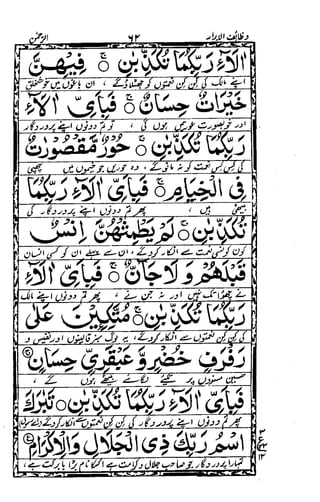 وظائف الابرار ۶۲ الرحمٰن
اٰلَآءِ رَبِّكُمَا تُكَذِّبٰنِ ۝ فِيْهِنَّ
اپنے مالک کی کن کن نعمتوں کو جھٹلاؤ گے ، ان باغوں میں خوشخلق
خَيْرٰتٌ حِسَانٌ ۝ فَبِاَىِّ اٰلَآءِ
اور خوبصورت عورتیں ہوں گی ، تو تم دونوں اپنے پروردگار
رَبِّكُمَا تُكَذِّبٰنِ ۝ حُوْرٌ مَّقْصُوْرٰتٌ
کی کس کس نعمت کو نہ مانو گے ، وہ حوریں جو خیموں میں چھپی
فِى الْخِيَامِ ۝ فَبِاَىِّ اٰلَآءِ رَبِّكُمَا
بیٹھی ہیں ، پھر تم دونوں اپنے پروردگار کی
تُكَذِّبٰنِ ۝ لَمْ يَطْمِثْهُنَّ اِنْسٌ
کون کونسی نعمت سے انکار کروگے ، ان سے پہلے ان کو کسی انسان
قَبْلَهُمْ وَلَا جَآنٌّ ۝ فَبِاَىِّ اٰلَآءِ
نے چھوا تک نہیں اور نہ جن نے ، پھر تم دونوں اپنے مالک
رَبِّكُمَا تُكَذِّبٰنِ ۝ مُتَّكِـِٕيْنَ عَلٰى
کی کن کن نعمتوں سے انکار کروگے ، یہ لوگ سبز قالینوں اور نفیس و
رَفْرَفٍ خُضْرٍ وَّعَبْقَرِىٍّ حِسَانٍ ۝
حسین مسندوں پر تکیے لگائے بیٹھے ہوں گے ،
فَبِاَىِّ اٰلَآءِ رَبِّكُمَا تُكَذِّبٰنِ ۝ تَبٰرَكَ
پھر تم دونوں اپنے پروردگار کی کن کن نعمتوں سے انکار کروگے
اسْمُ رَبِّكَ ذِى الْجَلٰلِ وَالْاِكْرَامِ ۝
تمہارا پروردگار جو صاحب جلال و کرامت ہے ، اسکا نام بڑا با برکت ہے ،